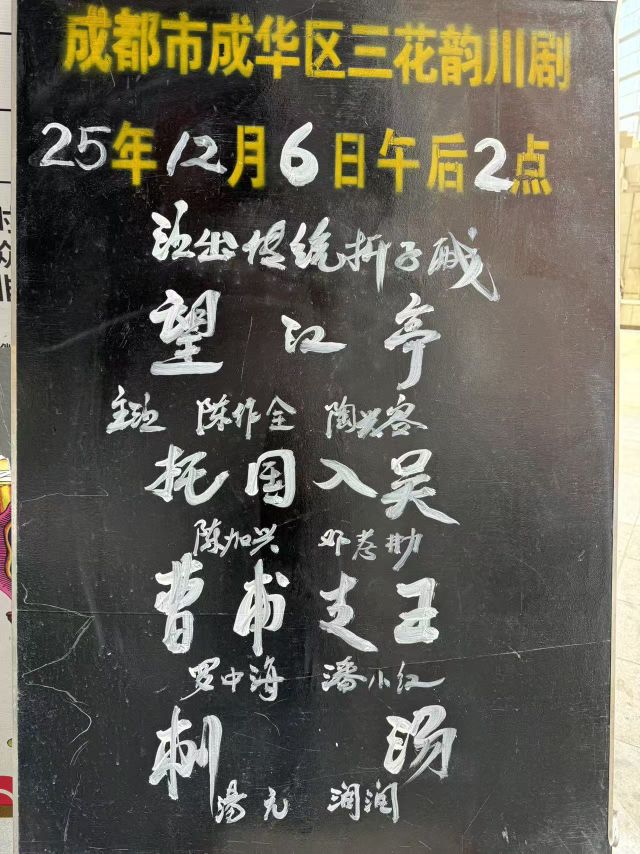 成都市成华区三花韵川剧
25年12月6日午后2点
演出传统折子戏
望江亭
主演 陈作全 陶兴容
托国入吴
陈加兴
曹甫走王
罗中海 潘小红
刺汤
汤元 润润